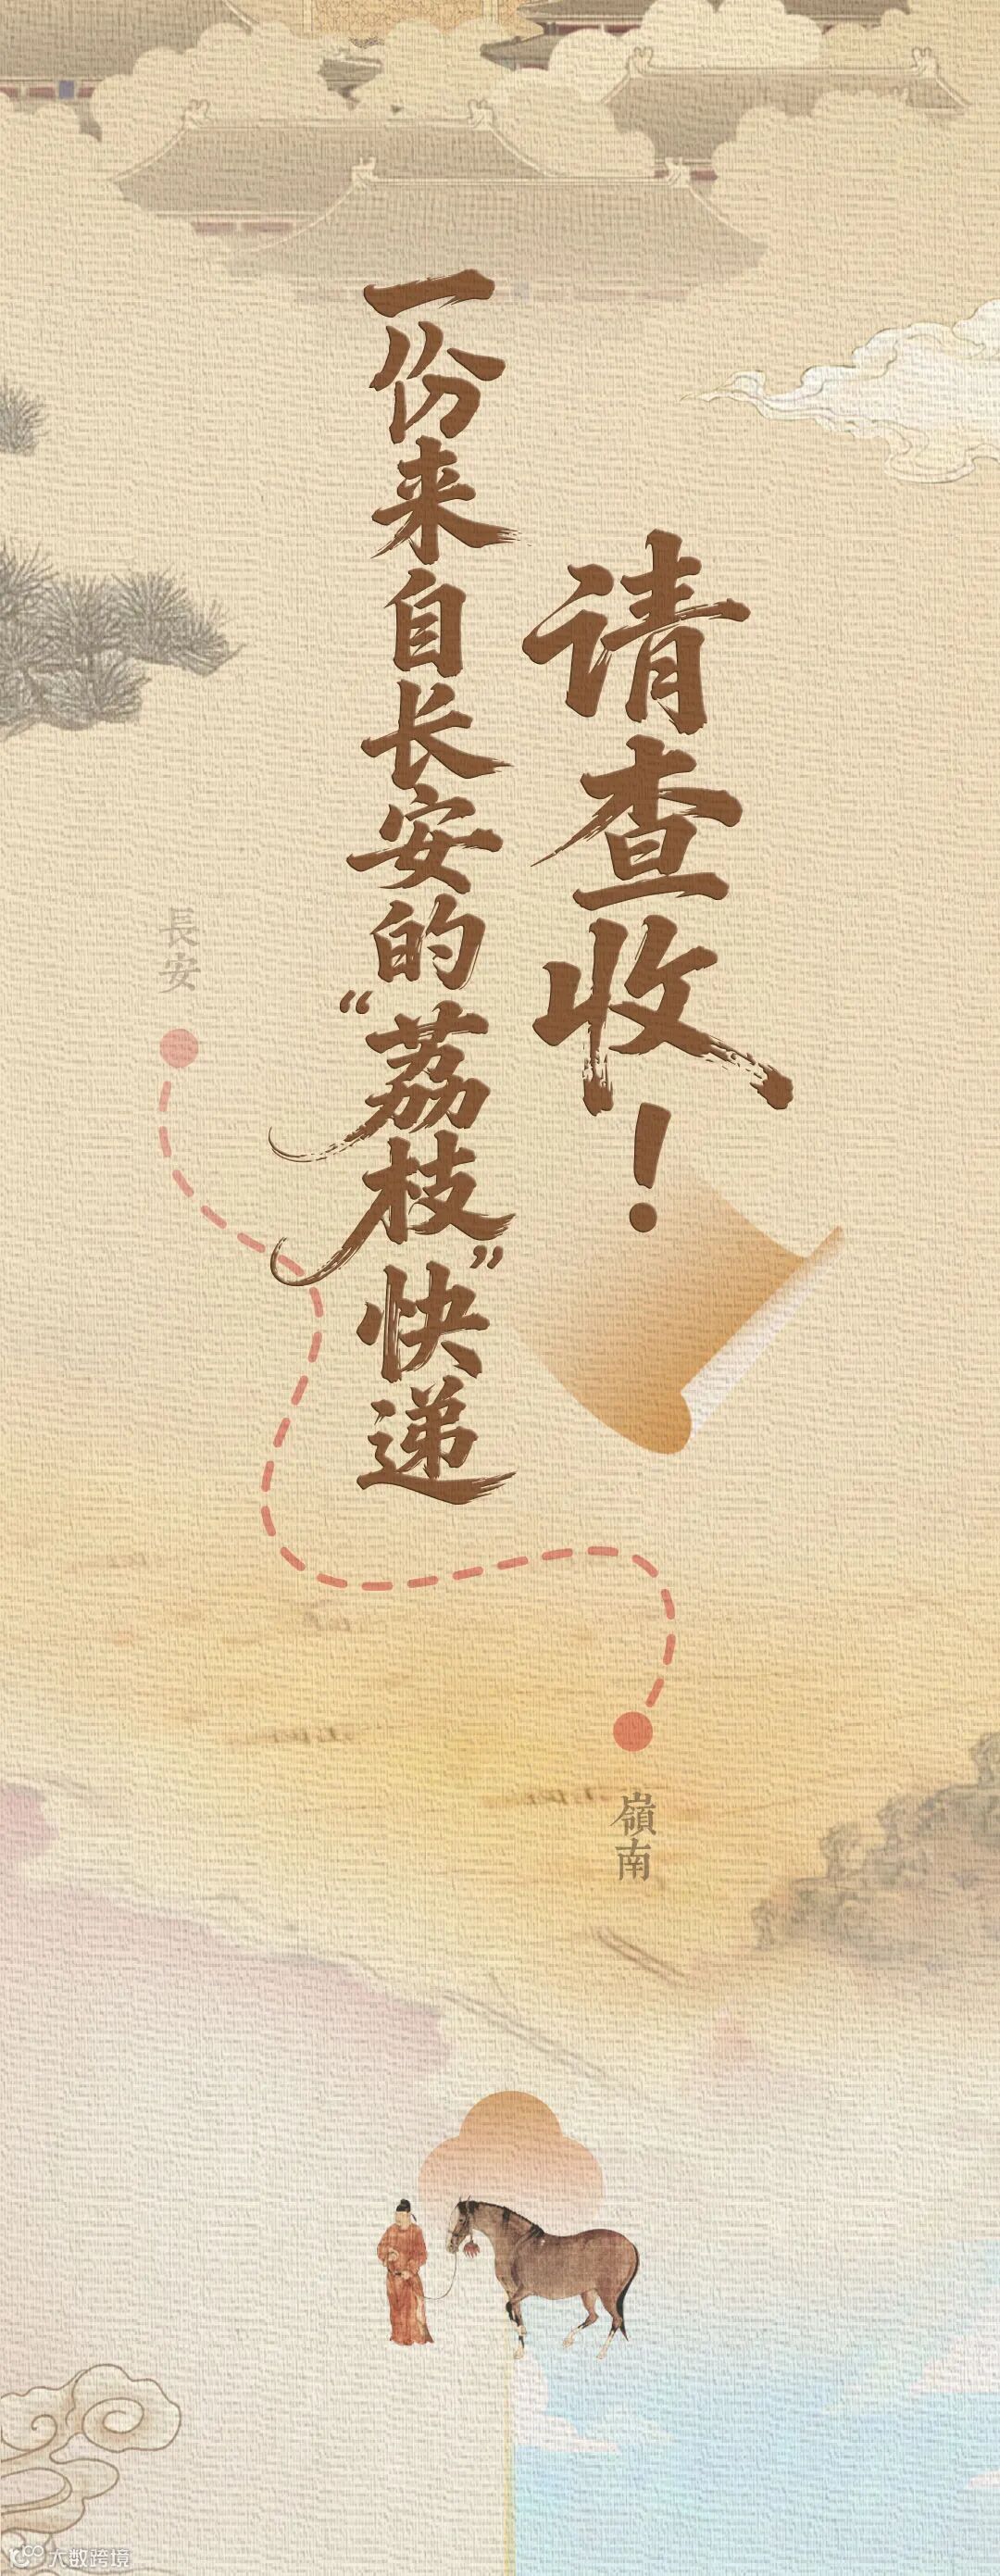 一份来自长安的“荔枝”快递
请查收！
長安
嶺南
大数跨境